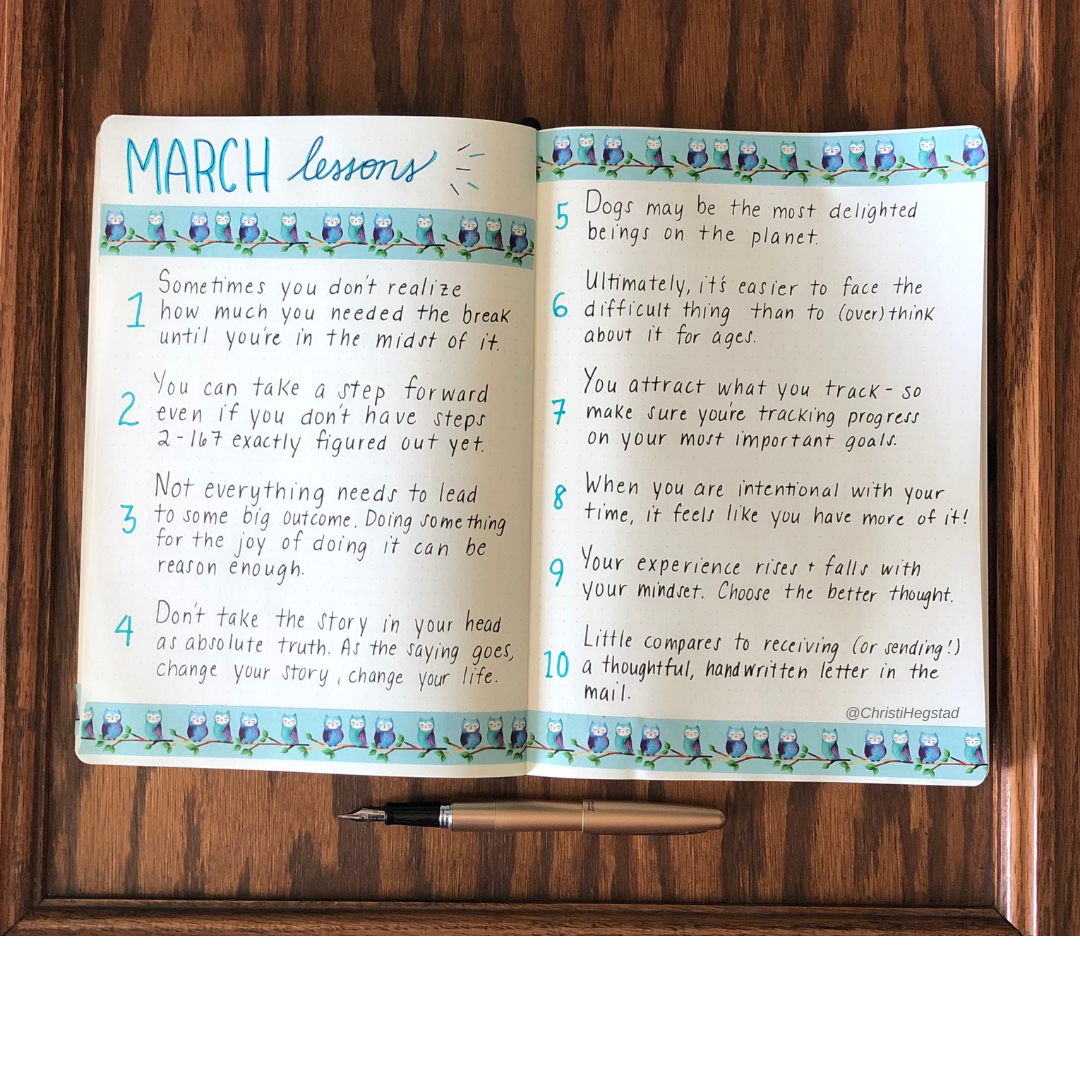 MARCH lessons
1 Sometimes you don't realize
how much you needed the break
until you're in the midst of it.
2 You can take a step forward
even if you don't have steps
2-167 exactly figured out yet.
3 Not everything needs to lead
to some big outcome. Doing something
for the joy of doing it can be
reason enough.
4 Don't take the story in your head
as absolute truth. As the saying goes,
change your story, change your life.
5 Dogs may be the most delighted
beings on the planet.
6 Ultimately, it's easier to face the
difficult thing than to (over)think
about it for ages.
7 You attract what you track - so
make sure you're tracking progress
on your most important goals.
8 When you are intentional with your
time, it feels like you have more of it!
9 Your experience rises + falls with
your mindset. Choose the better thought.
10 Little compares to receiving (or sending!)
a thoughtful, handwritten letter in the
mail.
@ChristiHegstad